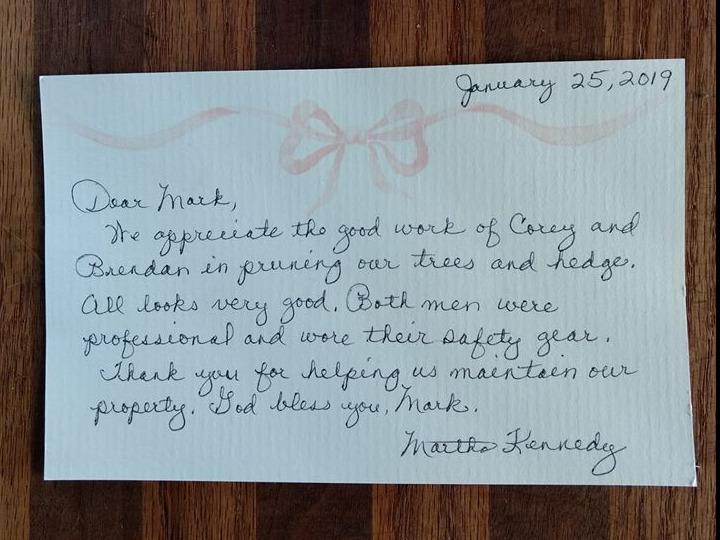 January 25, 2019
Dear Mark,
We appreciate the good work of Corey and
Brendan in pruning our trees and hedge.
All looks very good. Both men were
professional and wore their safety gear.
Thank you for helping us maintain our
property. God bless you, Mark.
Martha Kennedy